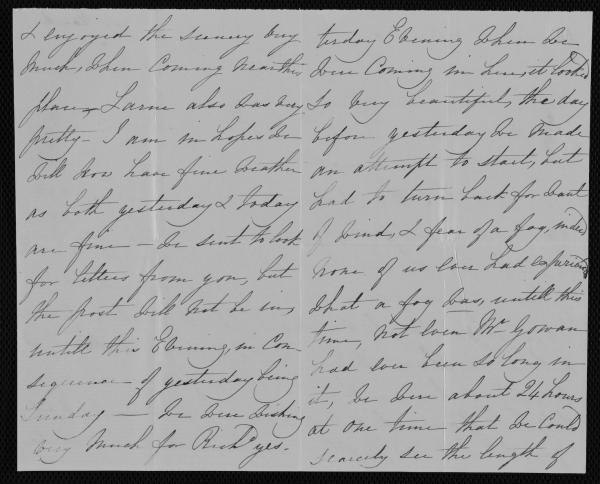 & enjoyed the scenery very
much, when coming near this
place, Larne also was very
pretty - I am in hopes we
will now have fine weather
as both yesterday & today
are fine - we sent to look
for letters from you, but
the post will not be in,
untill this Evening, in Con-
sequence of yesterday being
Sunday - we were wishing
very much for Richd yes-
terday Evening when we
were coming in here, it looked
so very beautiful, the day
before yesterday we made
an attempt to start, but
had to turn back for want
of wind, & fear of a fog, indeed
none of us ever had experienced
what a fog was, untill this
time, not even Mr Gowan
had ever been so long in
it, we were about 24 hours
at one time that we could
scarcely see the length of